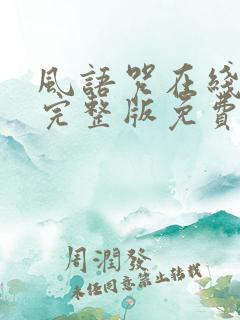 風語咒在綫
完整版免費
周潤發
未经同意禁止转载